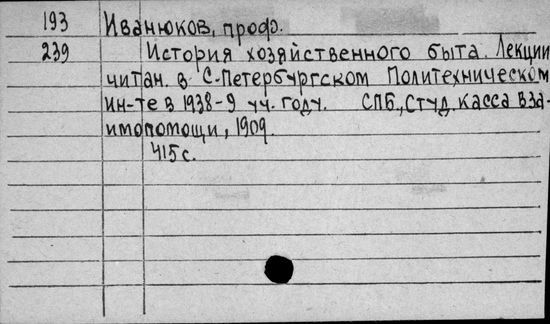 193 Иванюков, проф.
239 История хозяйственного быта. Лекции
читан. в С-Петербургском Политехническом
ин-те в 1938-9 уч. году. СПБ., Студ. касса вза-
имопомощи, 1909.
415 с.